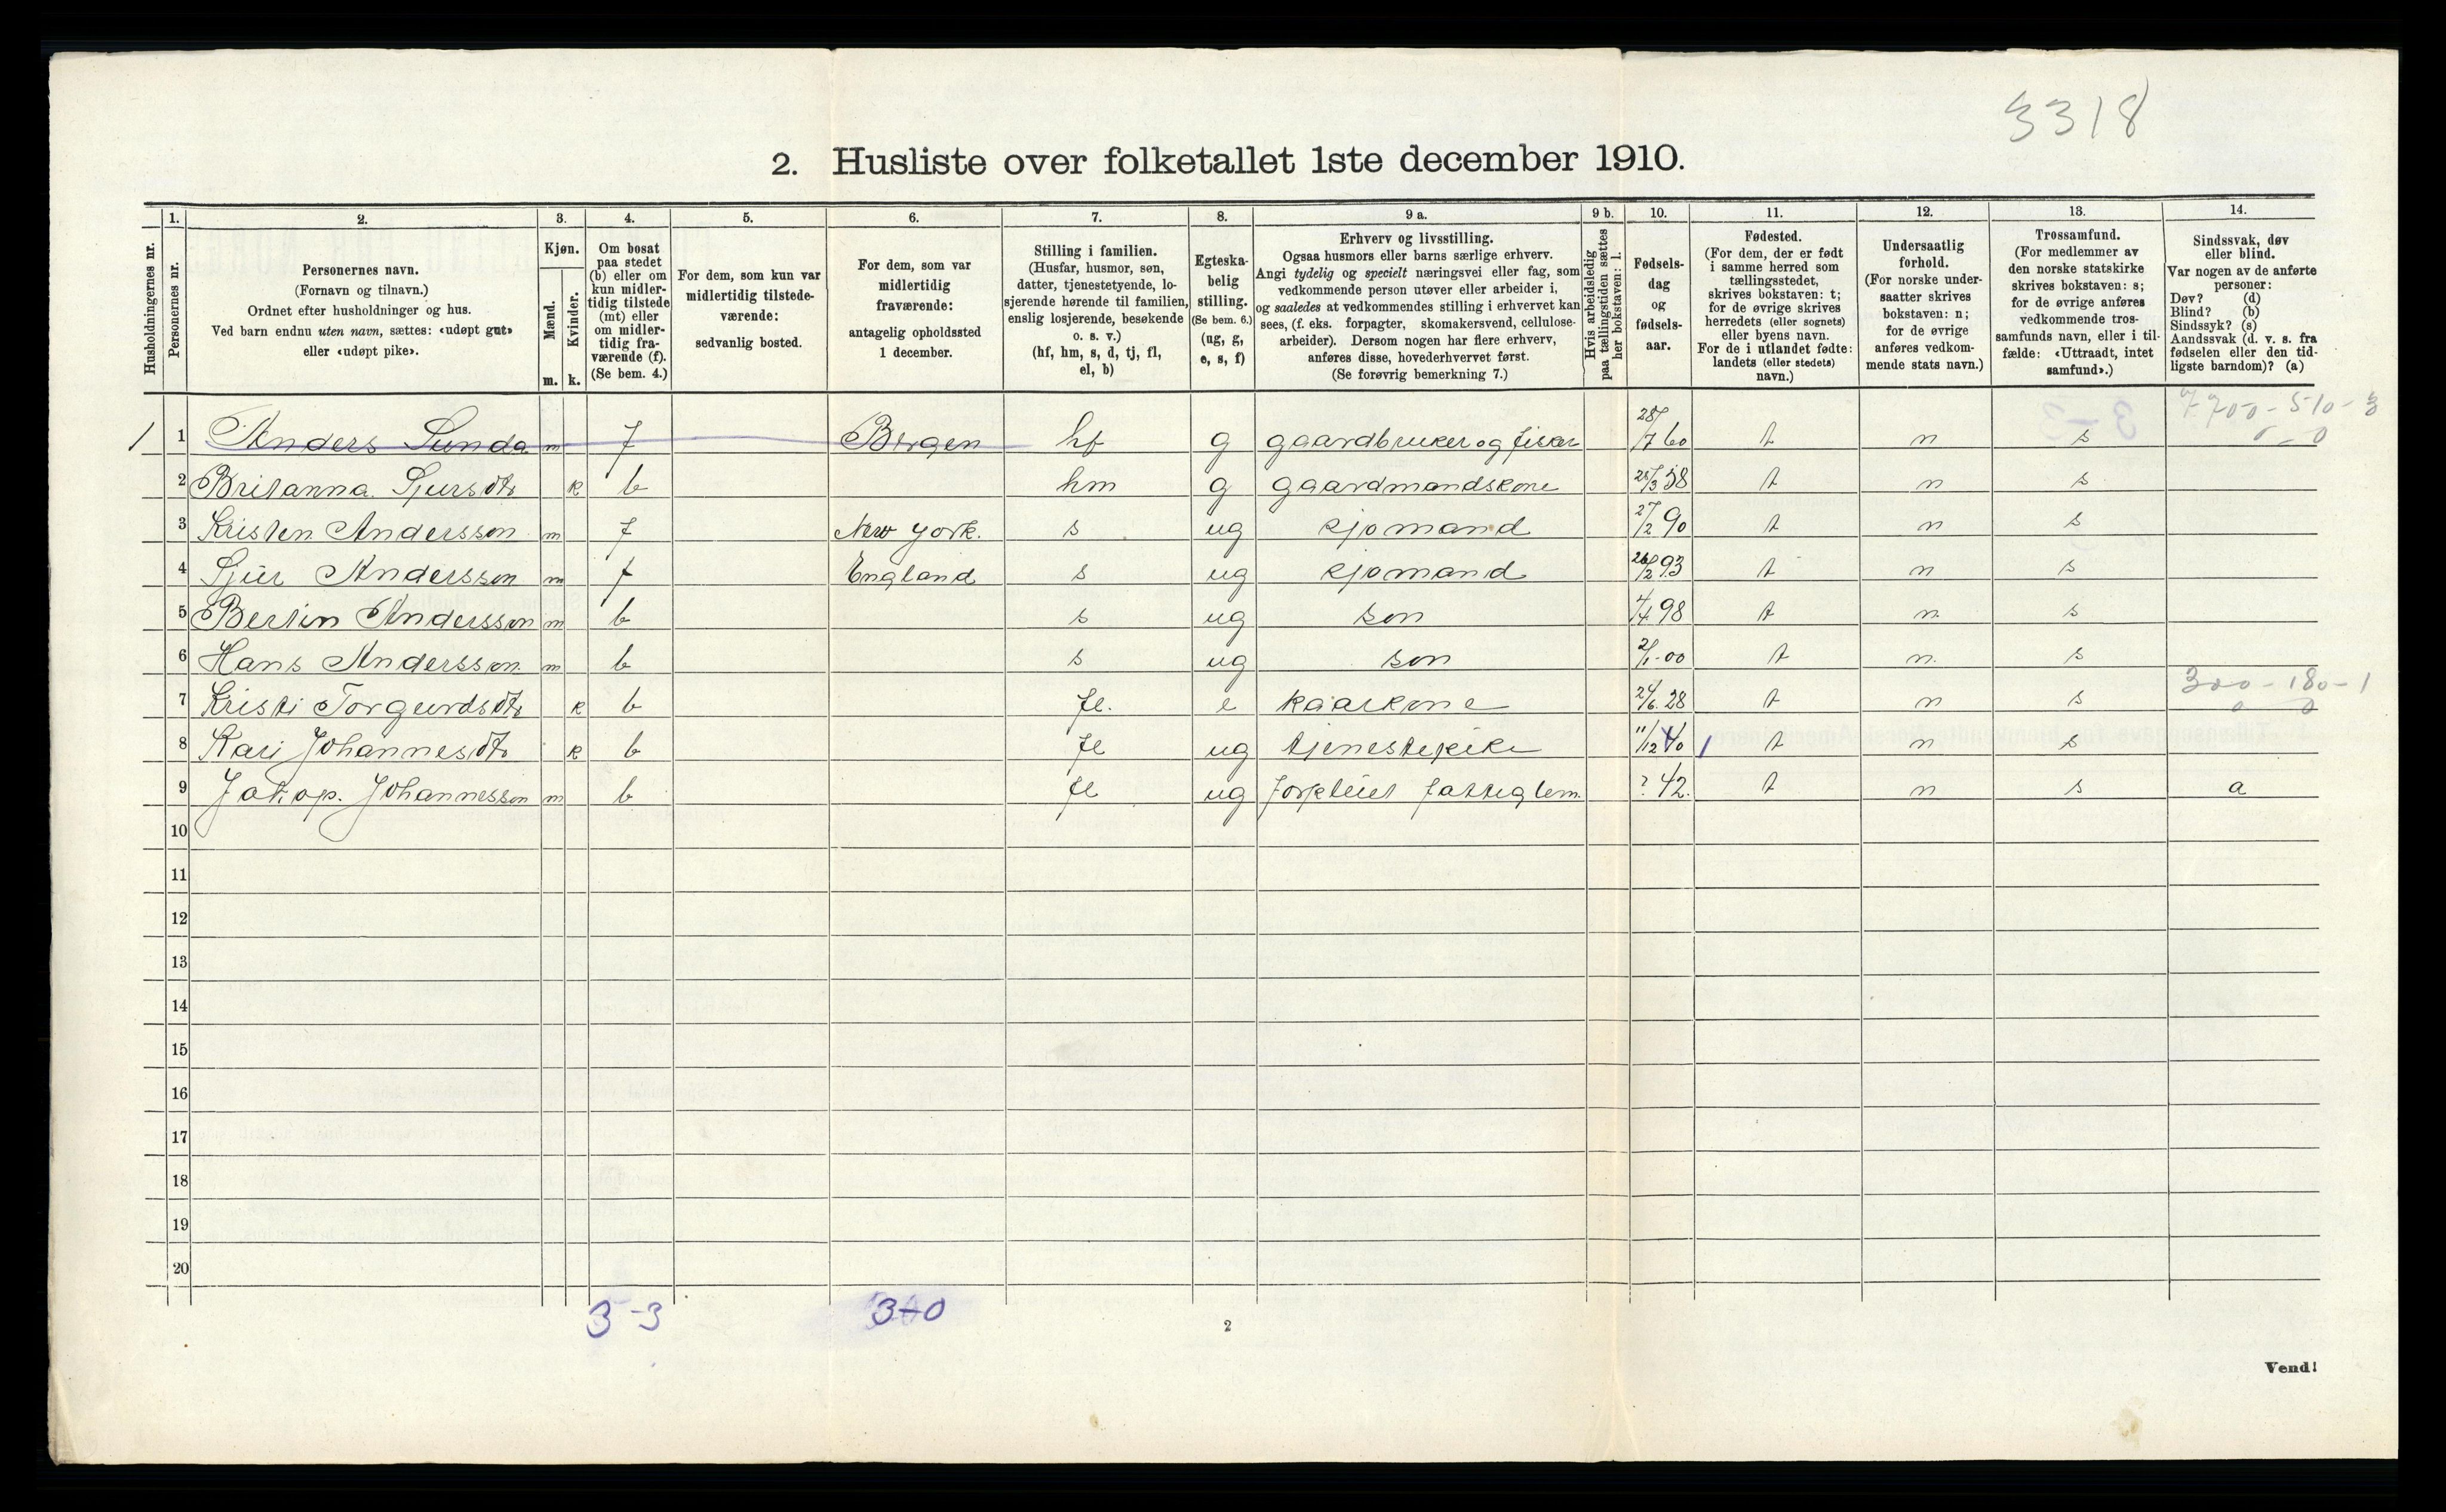 3318
2. Husliste over folketallet 1ste december 1910.
Husholdningernes nr.
1.
Personernes nr.
2.
Personernes navn.
(Fornavn og tilnavn.)
Ordnet efter husholdninger og hus.
Ved barn endnu uten navn, sættes: «udøpt gut»
eller «udøpt pike».
3.
Kjøn.
Mænd.
Kvinder.
m. k.
4.
Om bosat
paa stedet
(b) eller om
kun midler-
tidig tilstede
(mt) eller
om midler-
tidig fra-
værende (f).
(Se bem. 4.)
5.
For dem, som kun var
midlertidig tilstede-
værende:
sedvanlig bosted.
6.
For dem, som var
midlertidig
fraværende:
antagelig opholdssted
1 december.
7.
Stilling i familien.
(Husfar, husmor, søn,
datter, tjenestetyende, lo-
sjerende hørende til familien,
enslig losjerende, besøkende
o. s. v.)
(hf, hm, s, d, tj, fl,
el, b)
8.
Egteska-
belig
stilling.
(Se bem. 6.)
(ug, g,
e, s, f)
9 a.
Erhverv og livsstilling.
Ogsaa husmors eller barns særlige erhverv.
Angi tydelig og specielt næringsvei eller fag, som
vedkommende person utøver eller arbeider i,
og saaledes at vedkommendes stilling i erhvervet kan
sees, (f. eks. forpagter, skomakersvend, cellulose-
arbeider). Dersom nogen har flere erhverv,
anføres disse, hovederhvervet først.
(Se forøvrig bemerkning 7.)
9 b.
Hvis arbeidsledig
paa tællingstiden sættes
her bokstaven: l.
10.
Fødsels-
dag
og
fødsels-
aar.
11.
Fødested.
(For dem, der er født
i samme herred som
tællingsstedet,
skrives bokstaven: t;
for de øvrige skrives
herredets (eller sognets)
eller byens navn.
For de i utlandet fødte:
landets (eller stedets)
navn.)
12.
Undersaatlig
forhold.
(For norske under-
saatter skrives
bokstaven: n;
for de øvrige
anføres vedkom-
mende stats navn.)
13.
Trossamfund.
(For medlemmer av
den norske statskirke
skrives bokstaven: s;
for de øvrige anføres
vedkommende tros-
samfunds navn, eller i til-
fælde: «Uttraadt, intet
samfund».)
14.
Sindssvak, døv
eller blind.
Var nogen av de anførte
personer:
Døv? (d)
Blind? (b)
Sindssyk? (s)
Aandssvak (d. v. s. fra
fødselen eller den tid-
ligste barndom)? (a)
1 1 Anders Sunda m f Bergen hf g gaardbruker og fisker 28/7 60 t n s
2 Britanna Sjursdtr k b hm g gaardmandskone 58 t n s
3 Kristen Andersson m f New York. s ug sjømand 27/2 90 t n s
4 Sjur Andersson m f England s ug sjømand 26/2 93 t n s
5 Bertin Andersson m b s ug søn 4/4 98 t n s
6 Hans Andersson m b s ug søn 2/1-00 t n s
7 Kristi Torgerdsdtr k b fl. e kaarkone 24/6.28 t n s 300-180-1
8 Kari Johannesdtr k b fl ug tjenestepike 11/12 40 t n s
9 Jakop. Johannesson m b fl ug forpleiet fattiglem. ? 42. t n s a
10
11
12
13
14
15
16
17
18
19
20
3-3 3-0
2
Vend!